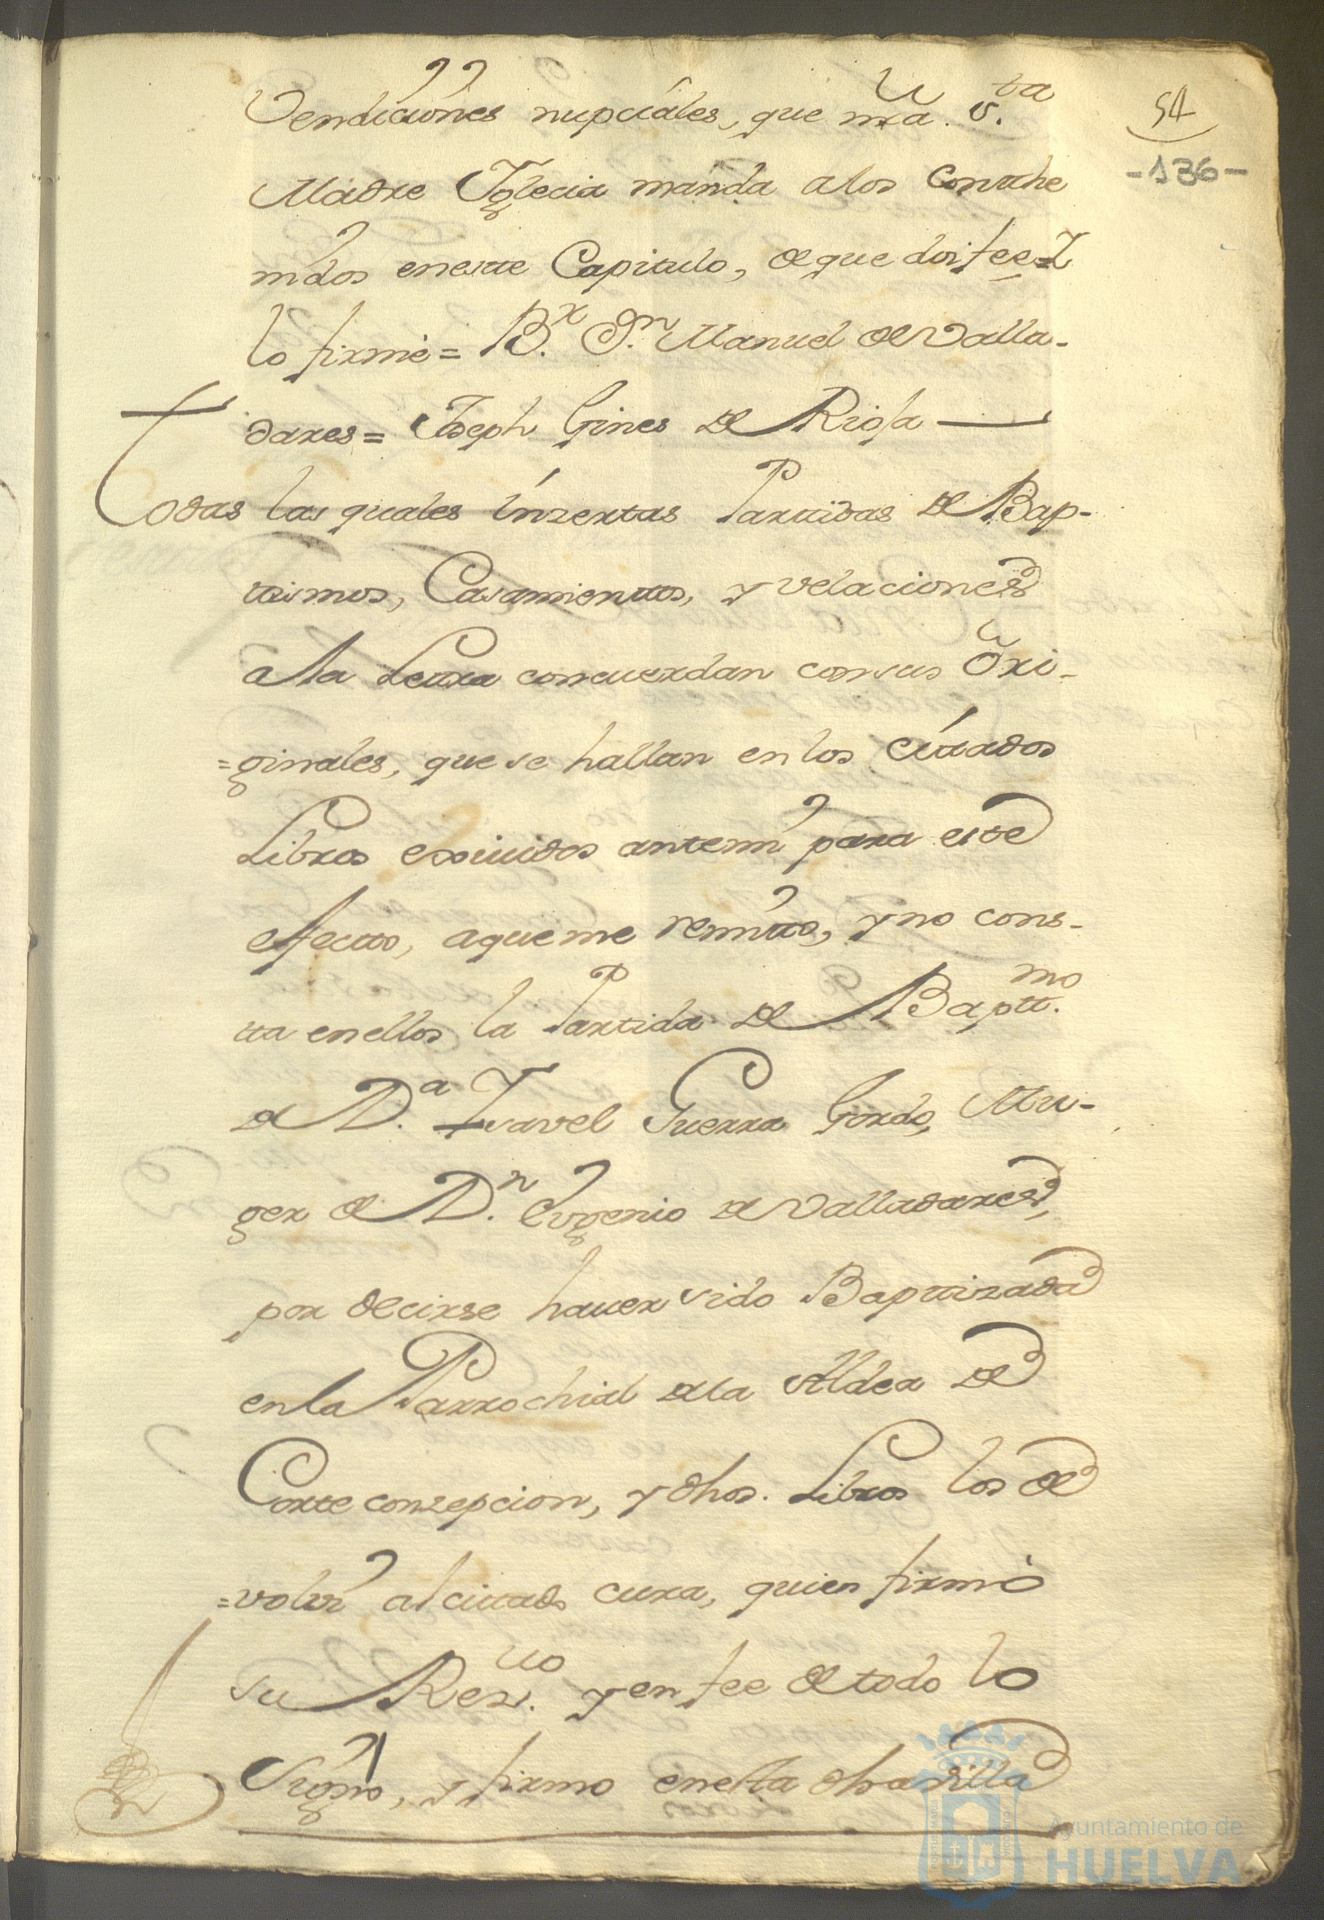 54
-136-
Vendiciones nupciales, que nra. S.ta
Madre Yglecia manda a los Conthe
mdos eneste Capitulo, de que doi fee=Y
lo firmé= B.r D.n Manuel de Valla-
dares= Joseph Gines de Riofa
Todas las quales inzertas Partidas de Bap-
tismos, Casamientos, y velaciones
ala Letra concuerdan con sus Ori-
=ginales, que se hallan en los Citados
Libros exsiuidos antemi para este
efecto, aque me remito, y no cons-
ta enellos la Partida de Baptt.mo
de D.a Ysavel Guerra Gordo, Mu-
ger de D.n Eugenio de Valladares,
por decirse hauer sido Baptizada
enla Parrochial dela Aldea de
Corteconzepcion, y dhos. Libros los de
=volvi al citado cura, quien firmó
su Rez.uo y en fee de todo lo
Signo, y firmo enesta dha villa
Ayuntamiento de
HUELVA